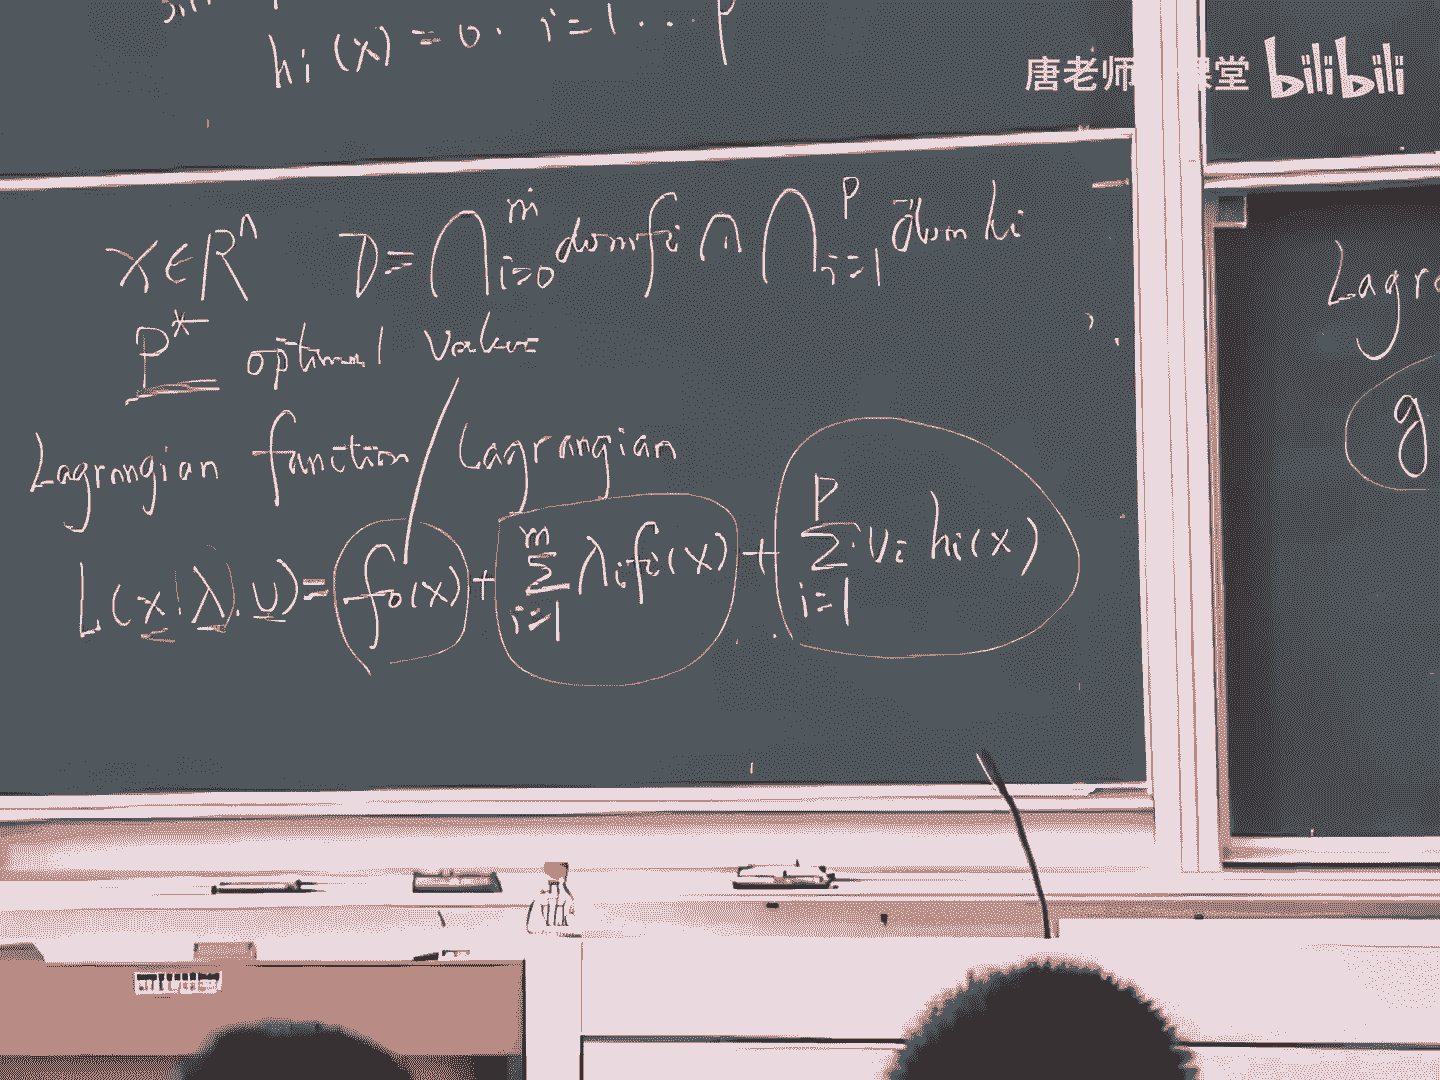 hi(x) = 0. i=1 ... p
唐老师 课堂 bilibili
x∈R^n D = ⋂_{i=0}^{m} dom fi ∩ ⋂_{i=1}^{p} dom hi
P* optimal value
Lagrangian function / Lagrangian
L(x, λ, υ) = f0(x) + ∑_{i=1}^{m} λi fi(x) + ∑_{i=1}^{p} υi hi(x)
Lagr
g